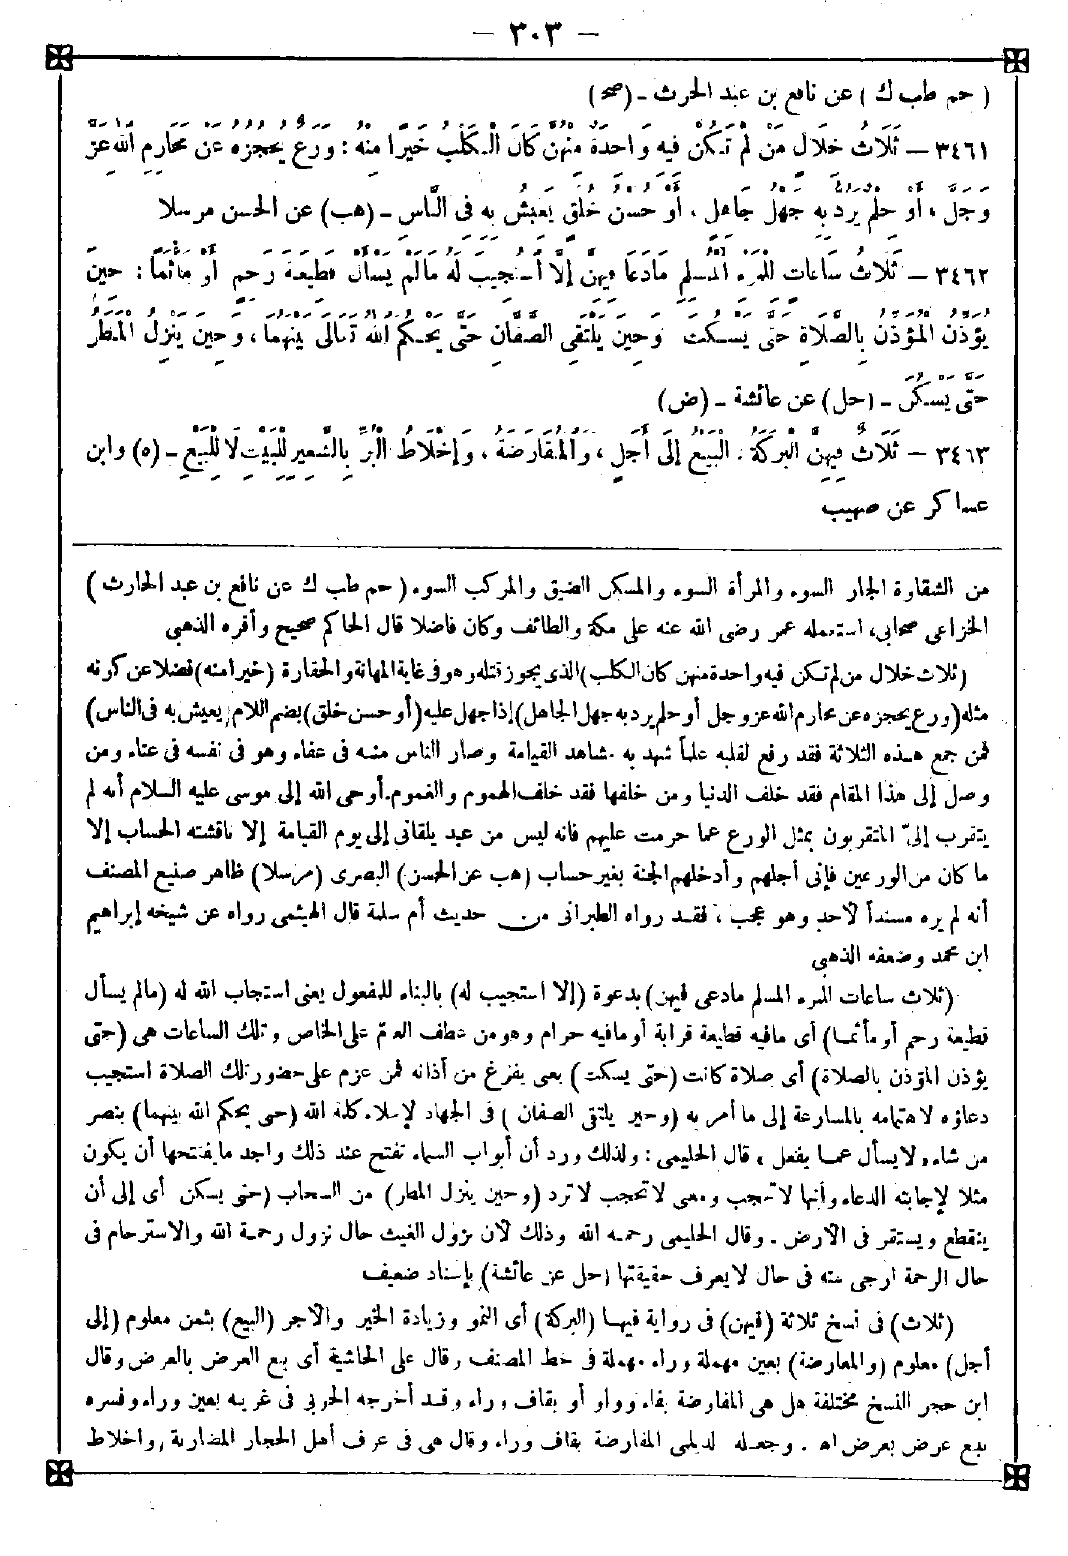 – ٣٠٣ –
( حم طب ك ) عن نافع بن عبد الحرث – (صح)
٣٤٦١ – ثَلَاثُ خِلَالٍ مَنْ لَمْ تَكُنْ فِيهِ وَاحِدَةٌ مِنْهُنَّ كَانَ الْكَلْبُ خَيْرًا مِنْهُ : وَرَعٌ يَحْجِزُهُ عَنْ مَحَارِمِ اللهِ عَزَّ
وَجَلَّ ، أَوْ حِلْمٌ يَرُدُّ بِهِ جَهْلَ جَاهِلٍ ، أَوْ حُسْنُ خُلُقٍ يَعِيشُ بِهِ فِى النَّاسِ – (هب) عن الحسن مرسلا
٣٤٦٢ – ثَلَاثُ سَاعَاتٍ لِلْمَرْءِ الْمُسْلِمِ مَا دَعَا فِيهِنَّ إِلَّا اسْتُجِيبَ لَهُ مَا لَمْ يَسْأَلْ قَطِيعَةَ رَحِمٍ أَوْ مَأْثَمًا : حِينَ
يُؤَذِّنُ الْمُؤَذِّنُ بِالصَّلَاةِ حَتَّى يَسْكُتَ وَحِينَ يَلْتَقِى الصَّفَّانِ حَتَّى يَحْكُمَ اللهُ تَعَالَى بَيْنَهُمَا ، وَحِينَ يَنْزِلُ الْمَطَرُ
حَتَّى يَسْكُنَ – (حل) عن عائشة – (ض)
٣٤٦٣ – ثَلَاثٌ فِيهِنَّ الْبَرَكَةُ . الْبَيْعُ إِلَى أَجَلٍ ، وَالْمُقَارَضَةُ ، وَإِخْلَاطُ الْبُرِّ بِالشَّعِيرِ لِلْبَيْتِ لَا لِلْبَيْعِ – (ه) وابن
عساكر عن صهيب
من الشقاوة الجار السوء والمرأة السوء والمسكن الضيق والمركب السوء ( حم طب ك عن نافع بن عبد الحارث )
الخزاعى صحابى، استعمله عمر رضى الله عنه على مكة والطائف وكان فاضلا قال الحاكم صحيح وأقره الذهبى
(ثلاث خلال من لم تكن فيه واحدة منهن كان الكلب) الذى يجوز قتله وهو فى غاية المهانة والحقارة (خيرا منه) فضلا عن كونه
مثله (ورع يحجزه عن محارم الله عز وجل أو حلم يرد به جهل الجاهل) إذا جهل عليه (أو حسن خلق) بضم اللام (يعيش به فى الناس)
فمن جمع هذه الثلاثة فقد رفع لقلبه علماً شهد به مشاهد القيامة وصار الناس منه فى عفاء وهو فى نفسه فى عناء ومن
وصل إلى هذا المقام فقد خلف الدنيا ومن خلفها فقد خلف الهموم والغموم. أوحى الله إلى موسى عليه السلام أنه لم
يتقرب إلىّ المتقربون بمثل الورع عما حرمت عليهم فانه ليس من عبد يلقانى إلى يوم القيامة إلا ناقشته الحساب إلا
ما كان من الورعين فإنى أجلهم وأدخلهم الجنة بغير حساب (هب عن الحسن) البصرى (مرسلا) ظاهر صنيع المصنف
أنه لم يره مسنداً لأحد وهو عجب ، فقد رواه الطبرانى من حديث أم سلمة قال الهيثمى رواه عن شيخه إبراهيم
ابن محمد وضعفه الذهبى
(ثلاث ساعات للمرء المسلم مادعى فيهن) بدعوة (إلا استجيب له) بالبناء للمفعول يعنى استجاب الله له (مالم يسأل
قطيعة رحم أو مأثما) أى مافيه قطيعة قرابة أو مافيه حرام وهو من عطف العام على الخاص وتلك الساعات هى (حتى
يؤذن المؤذن بالصلاة) أى صلاة كانت (حتى يسكت) يعنى يفرغ من أذانه فمن عزم على حضور تلك الصلاة استجيب
دعاؤه لاهتمامه بالمسارعة إلى ما أمر به (وحين يلتقى الصفان ) فى الجهاد لإعلاء كلمة الله (حتى يحكم الله بينهما) بنصر
من شاء ، لا يسأل عما يفعل ، قال الحليمى : ولذلك ورد أن أبواب السماء تفتح عند ذلك واجد ما يفتتحها أن يكون
مثلا لإجابته الدعاء وأنها لا تحجب ومعنى لا تحجب لا ترد (وحين ينزل المطر) من السحاب (حتى يسكن أى إلى أن
ينقطع ويستقر فى الأرض . وقال الحليمى رحمه الله وذلك لأن نزول الغيث حال نزول رحمة الله والاسترحام فى
حال الرحمة أرجى منه فى حال لا يعرف حقيقتها (حل عن عائشة) بإسناد ضعيف
(ثلاث) فى نسخ ثلاثة (فيهن) فى رواية فيها (البركة) أى النمو وزيادة الخير والأجر (البيع) بثمن معلوم (إلى
أجل) معلوم (والمعارضة) بعين مهملة وراء مهملة فى خط المصنف وقال على الحاشية أى بيع العرض بالعرض وقال
ابن حجر النسخ مختلفة هل هى المفاوضة بفاء وواو أو بقاف وراء وقد أخرجه الحربى فى غريبه بعين وراء وفسره
ببيع عرض بعرض اه . وجعله الديلمى المقارضة بقاف وراء وقال هى فى عرف أهل الحجاز المضاربة (واخلاط